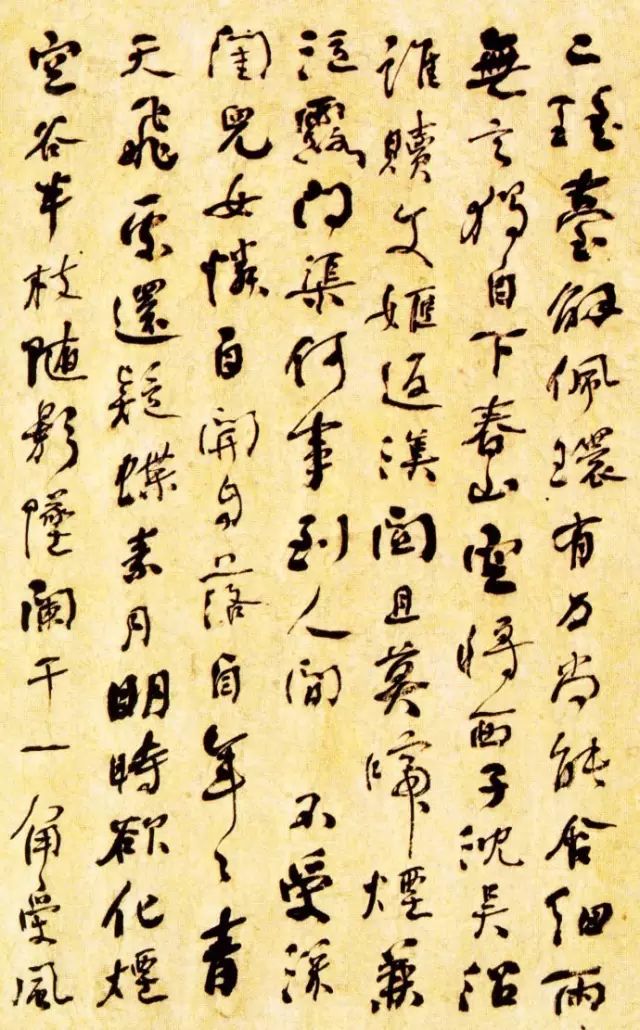 二瑤臺解佩環有力尚能含細雨
無言獨自下春山空將西子沈吳沼
誰贖文姬返漢關且莫啼煙兼
泣露問渠何事到人間 不受深
閨兒女憐自開自落自年々青
天飛處還疑蝶素月明時欲化煙
空谷半枝隨影墜闌干一角受風